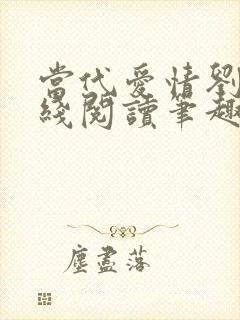 當代愛情劉
綫閱讀筆趣
塵盡落